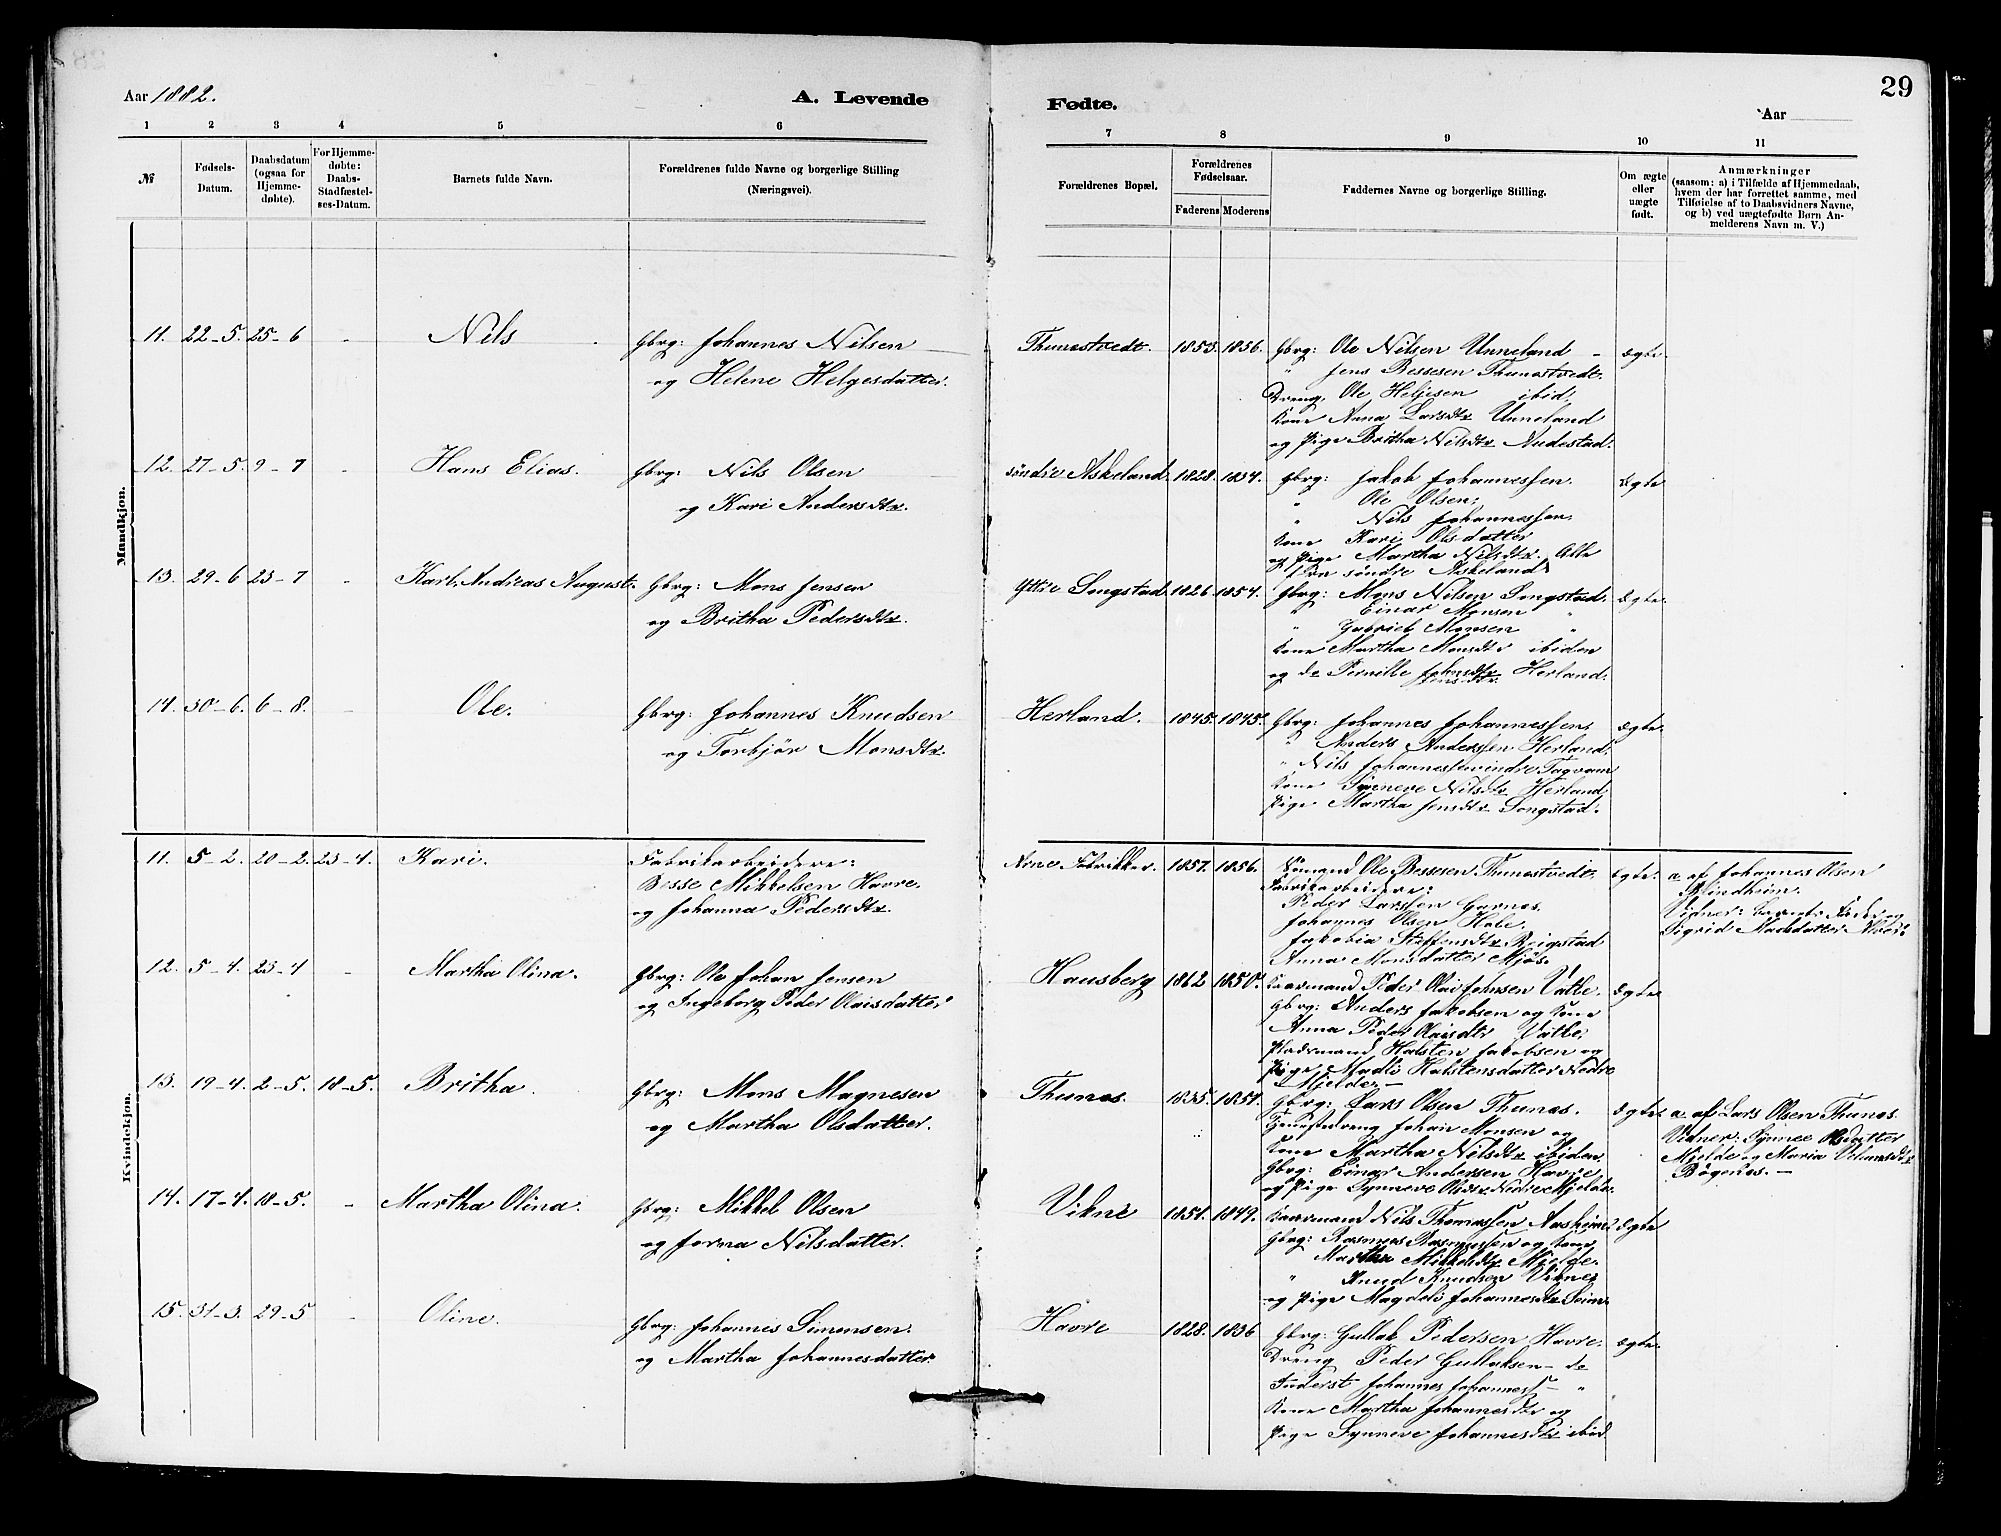 29
Aar 1882. A. Levende Fødte. Aar
1 2 3 4 5 6 7 8 9 10 11
№ Fødsels-Datum. Daabsdatum (ogsaa for Hjemmedøbte). For Hjemmedøbte: Daabs-Stadfæstelses-Datum. Barnets fulde Navn. Forældrenes fulde Navne og borgerlige Stilling (Næringsvei). Forældrenes Bopæl. Forældrenes Fødselsaar. Faderens Moderens Faddernes Navne og borgerlige Stilling. Om ægte eller uægte født. Anmærkninger (saasom: a) i Tilfælde af Hjemmedaab, hvem der har forrettet samme, med Tilføielse af to Daabsvidners Navne, og b) ved uægtefødte Børn Anmelderens Navn m. V.)
Mandkjøn.
11. 22-5. 25-6 - Nils Gbrg: Johannes Nilsen Thunestvedt. 1853. 1856. Gbrg: Ole Nilsen Unneland - Ægte
og Helene Helgesdatter. " Jens Bessesen Thunestvedt.
Dreng, Ole Helgesen ibid:
Kone Anna Larsdtr Unneland
og Pige Britha Nilsdtr Audestad.
12. 27-5. 9-7 - Hans Elias. Gbrg: Nils Olsen søndre Askeland. 1828. 1834. Gbrg: Jakob Johannessen. Ægte
og Kari Andersdtr. " Ole Olsen;
" Nils Johannessen.
Kone Kari Olsdatter
og Pige Martha Nilsdtr. Alle
fra søndre Askeland.
13. 29-6 23-7 - Karl Andreas August. Gbrg: Mons Jensen Yttre Songstad. 1826. 1854. Gbrg: Mons Nilsen Songstad. Ægte.
og Britha Pedersdtr. Einar Monsen "
" Gabriel Monsen "
Kone Martha Monsdtr ibiden
og de Pernille Jensdtr Herland.
14. 30-6. 6-8. - Ole. Gbrg: Johannes Knudsen Herland. 1845. 1845. Gbrg: Johannes Johannessen, Ægte.
og Torbjør Monsdtr. " Anders Anderssen Herland.
" Nils Johannessen indre Tagvam
Kone Synneve Nilsdtr Herland
Pige Martha Jensdtr Songstad.
Kvindekjøn.
11. 5-2. 20-2. 23-4. Kari. Fabrikarbeidere: Arne Fabrikker. 1857. 1856. Sømand Ole Bessesen Thunestvedt. Ægte. a. af Johannes Olsen
Besse Mikkelsen Havre. Fabrikarbeidere: Blindheim.
og Johanna Pedersdtr. Peder Larssen Garnes. Vidner: Barnets Fader og
Johannes Olsen Hole. Sigrid Madsdatter
Jakobia Steffensdtr Reigstad
Anna Monsdatter Mjøs.
12. 5-4. 23-4 - Martha Olina. Gbrg: Ole Johan Jensen Hausberg 1862 1850. Kaarmand Peder Olai Johnsen Vatle. Ægte
og Ingeborg Peder Olaisdatter Gbrg: Anders Jakobsen og Kone
Anna Peder Olaisdtr Vatle,
Pladsmand Halsten Jakobsen og
Pige Madli Halstensdatter Nedre
Mjelde. -
13. 19-4. 2-5. 18-5. Britha. Gbrg: Mons Magnesen Thunes. 1835. 1851. Gbrg: Lars Olsen Thunes. Ægte. a. af Lars Olsen Thunes.
og Martha Olsdatter. Tjenestedreng Johan Monsen og Vidner: Synnee Olsdatter
Kone Martha Nilsdtr ibiden Mjelde og Maria
Gbrg: Einar Andersen Havre Bøgenes. -
og Pige Synneve Olsdtr Nedre Mjelde.
14. 17-4. 18-5. - Martha Olina. Gbrg: Mikkel Olsen Vikne 1851. 1849. Kaarmand Nils Thomassen Aasheim Ægte
og Jorna Nilsdatter. Gbrg: Rasmus Rasmussen og Kone
Martha Mikkelsdtr Mjelde.
" Knud Knudsen Vikne
og Pige Magdeli Johannesdtr Seim.
15. 31-3. 29-5 - Oline. Gbrg: Johannes Simonsen. Havre 1828. 1836 Gbrg: Gullak Pedersen Havre. Ægte.
og Martha Johannesdatter. Dreng Peder Gullaksen - de
Inderst Johannes Johanness - "
Kone Martha Johannesdtr og
Pige Synneve Johannesdtr ibid